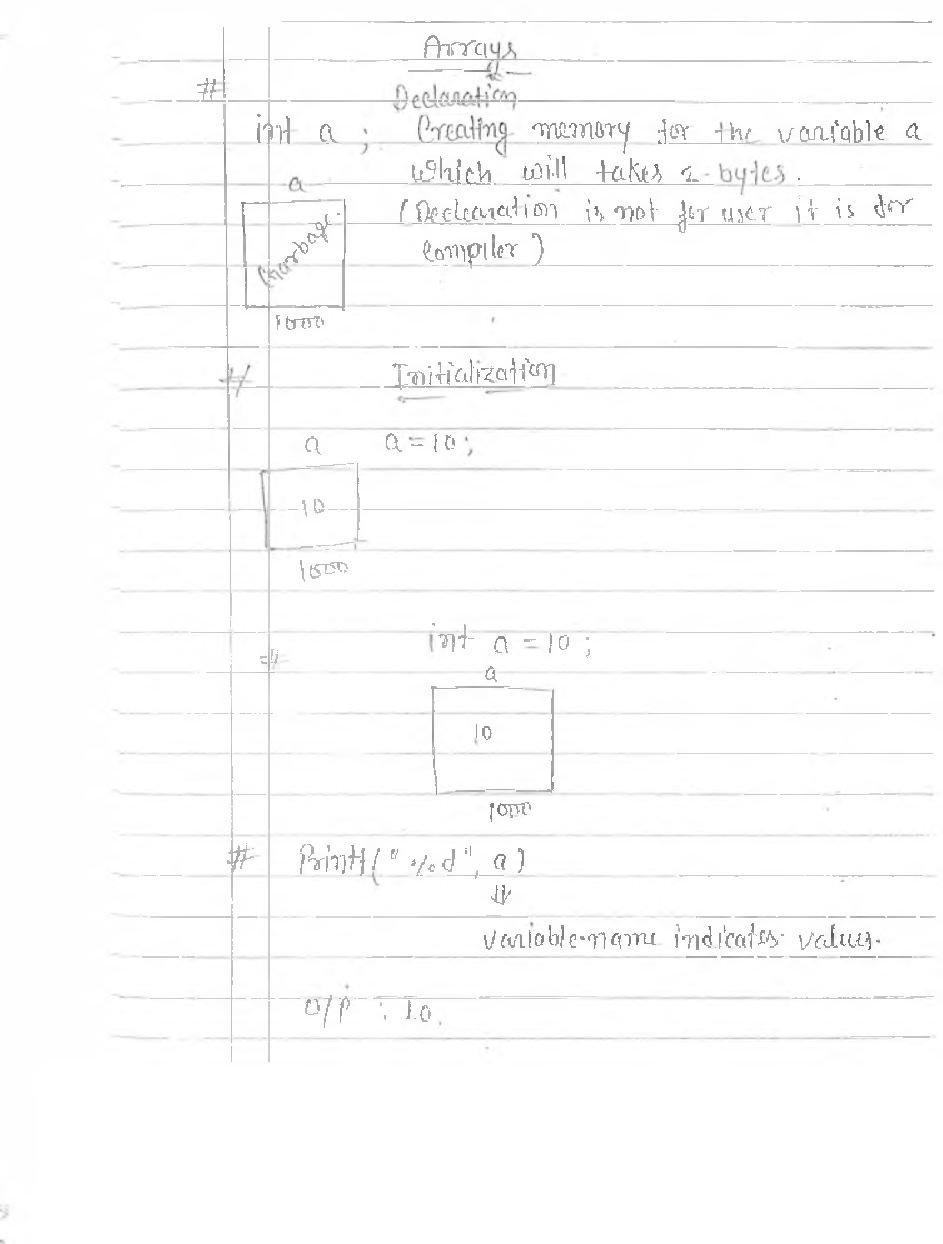 Arrays
# Declaration
int a ; Creating memory for the variable a
which will takes 2-bytes.
a
(Declaration is not for user it is for
Garbage.
compiler)
1000
# Initialization
a a = 10 ;
10
1000
# int a = 10 ;
a
10
1000
# Printf(" %d", a)
⇓
variable-name indicates values.
O/P : 10.